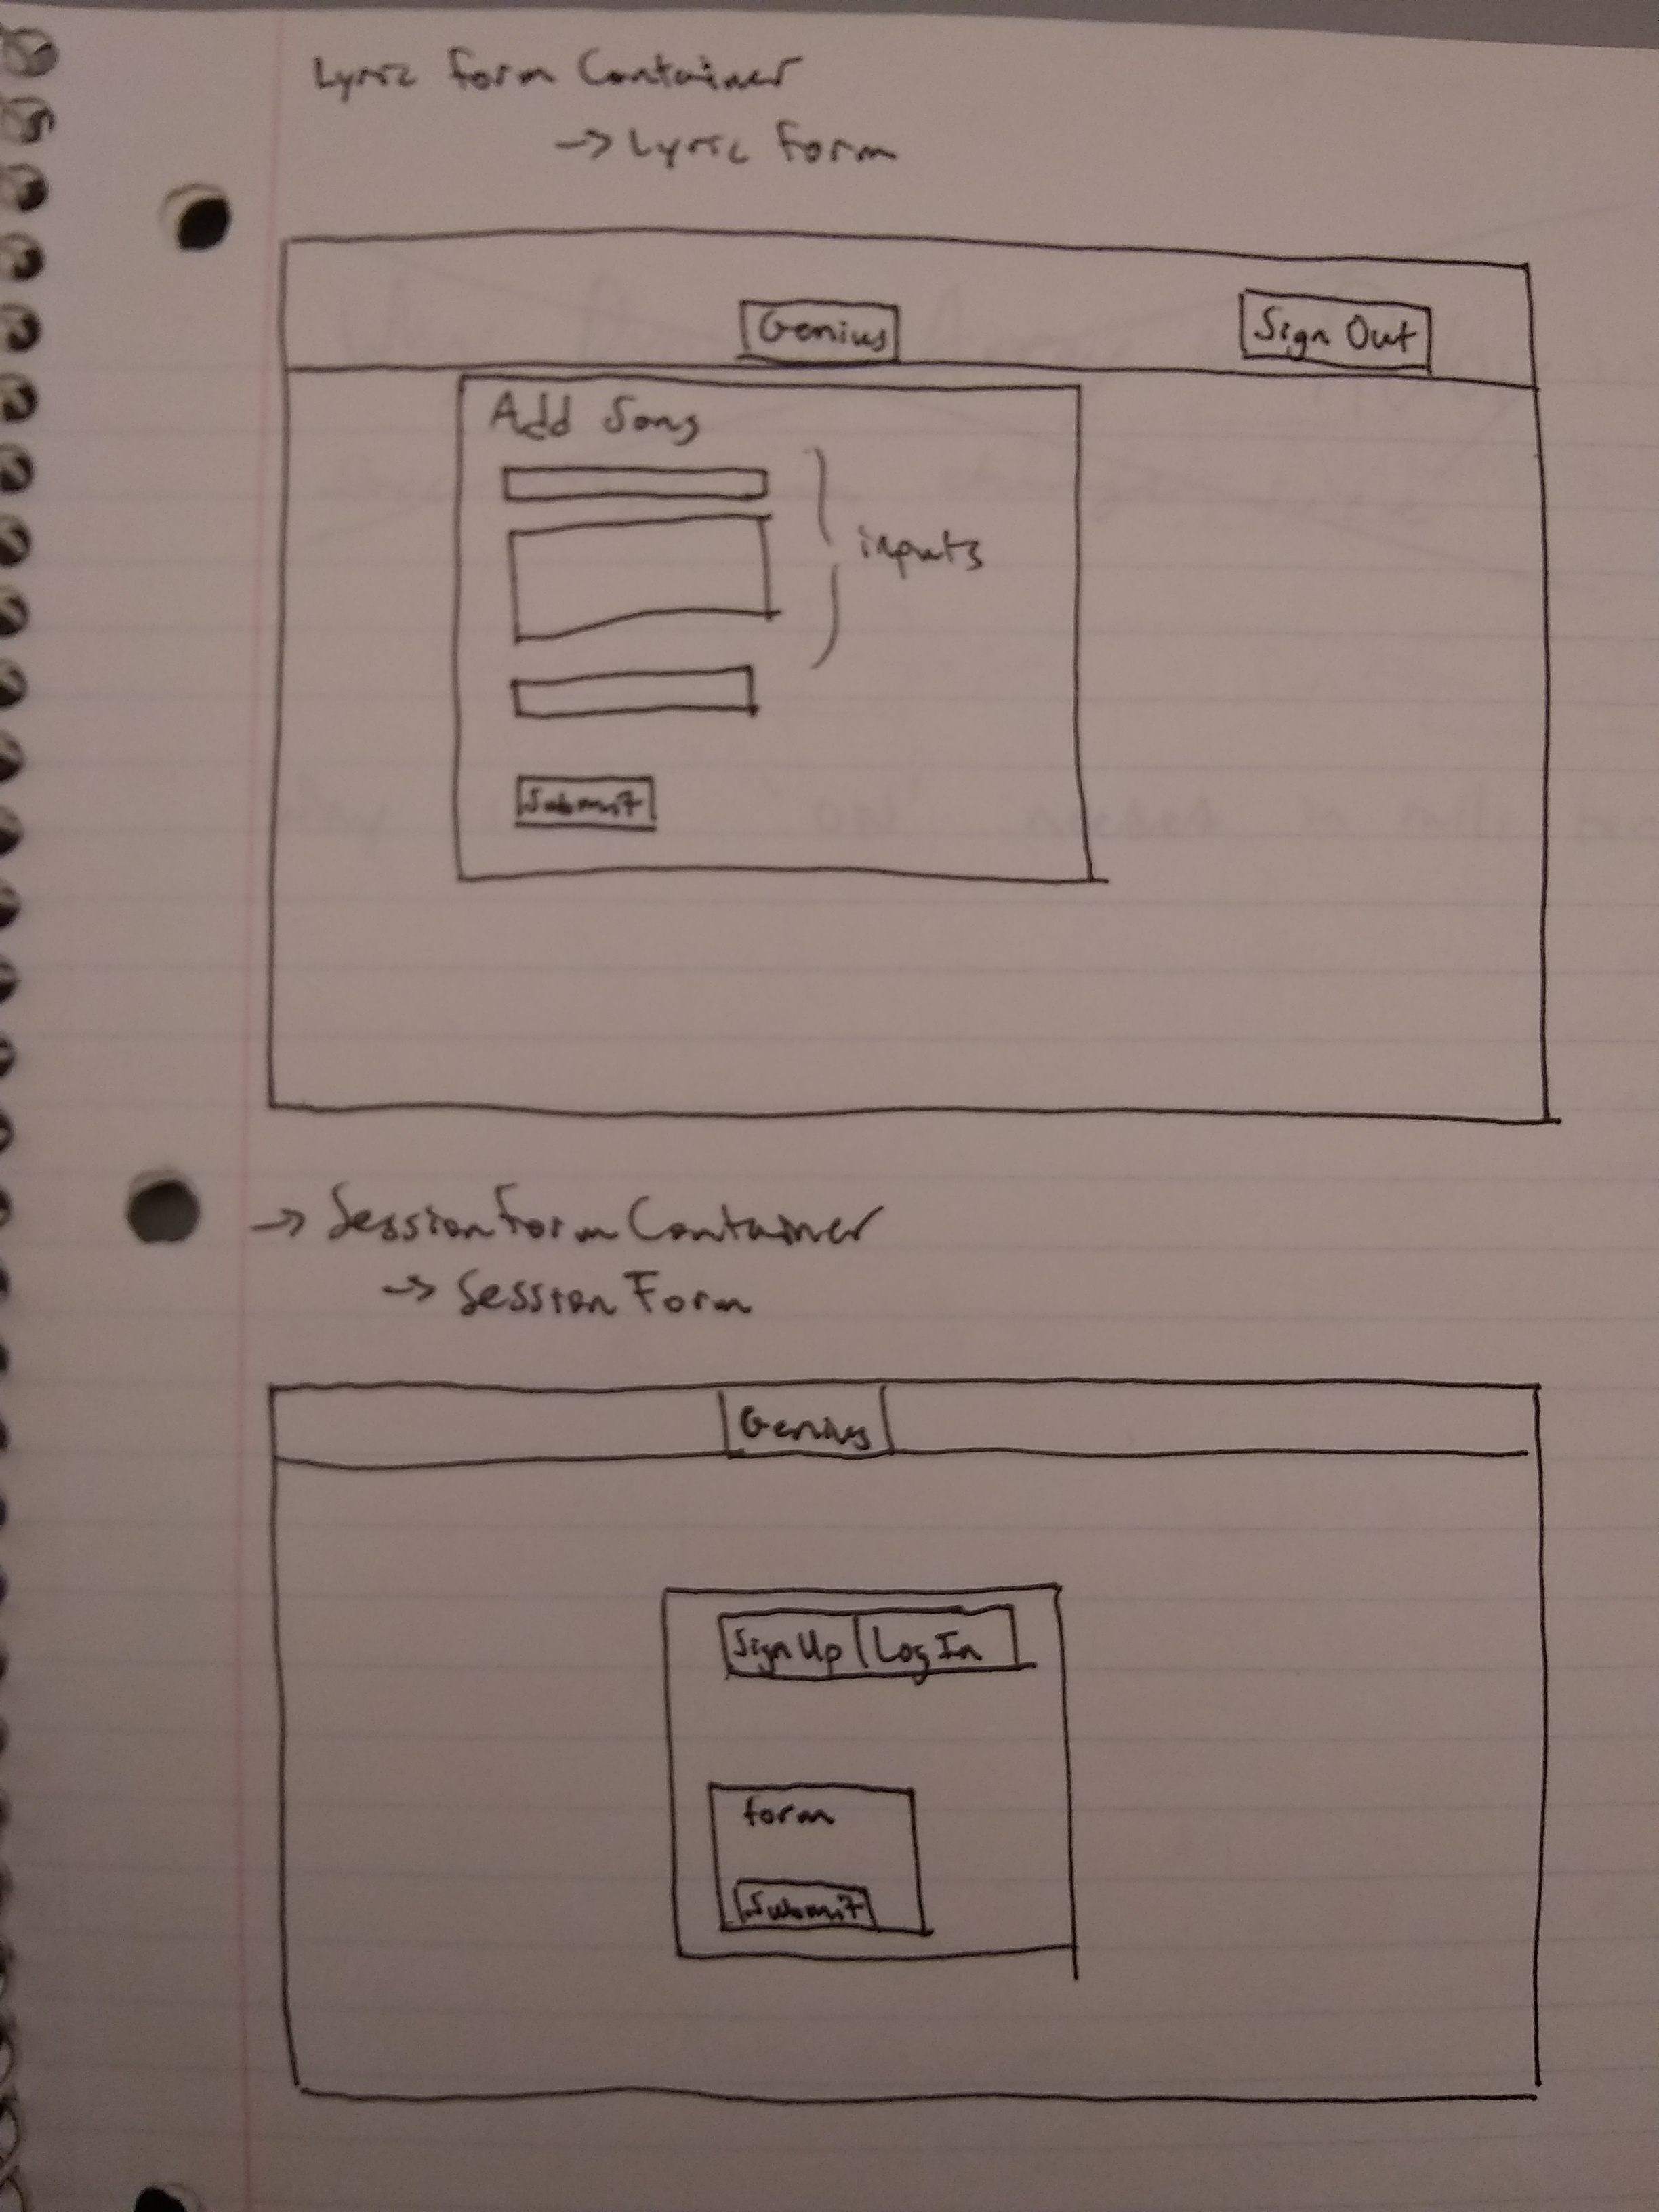 Lyric Form Container
→ Lyric Form
Genius
Sign Out
Add Song
inputs
Submit
→ SessionFormContainer
→ SessionForm
Genius
Sign Up Log In
form
Submit